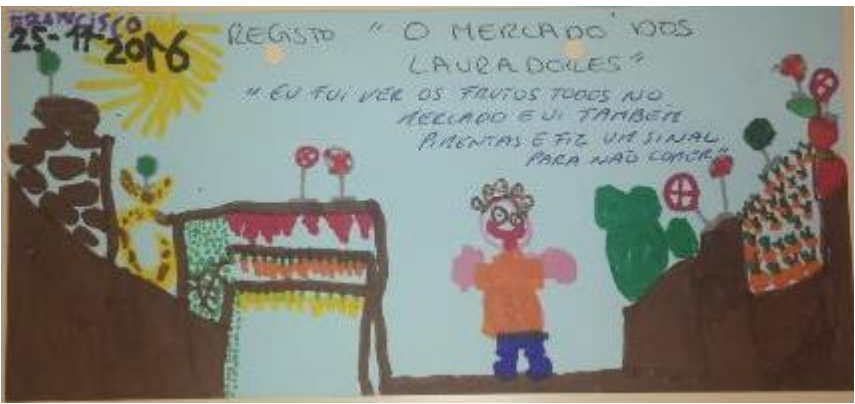 FRANCISCO
25-11-2016
REGISTO "O MERCADO DOS
LAVRADORES"
"EU FUI VER OS FRUTOS TODOS NO
MERCADO E VI TAMBÉM
PIMENTAS E FIZ UM SINAL
PARA NÃO COMER"